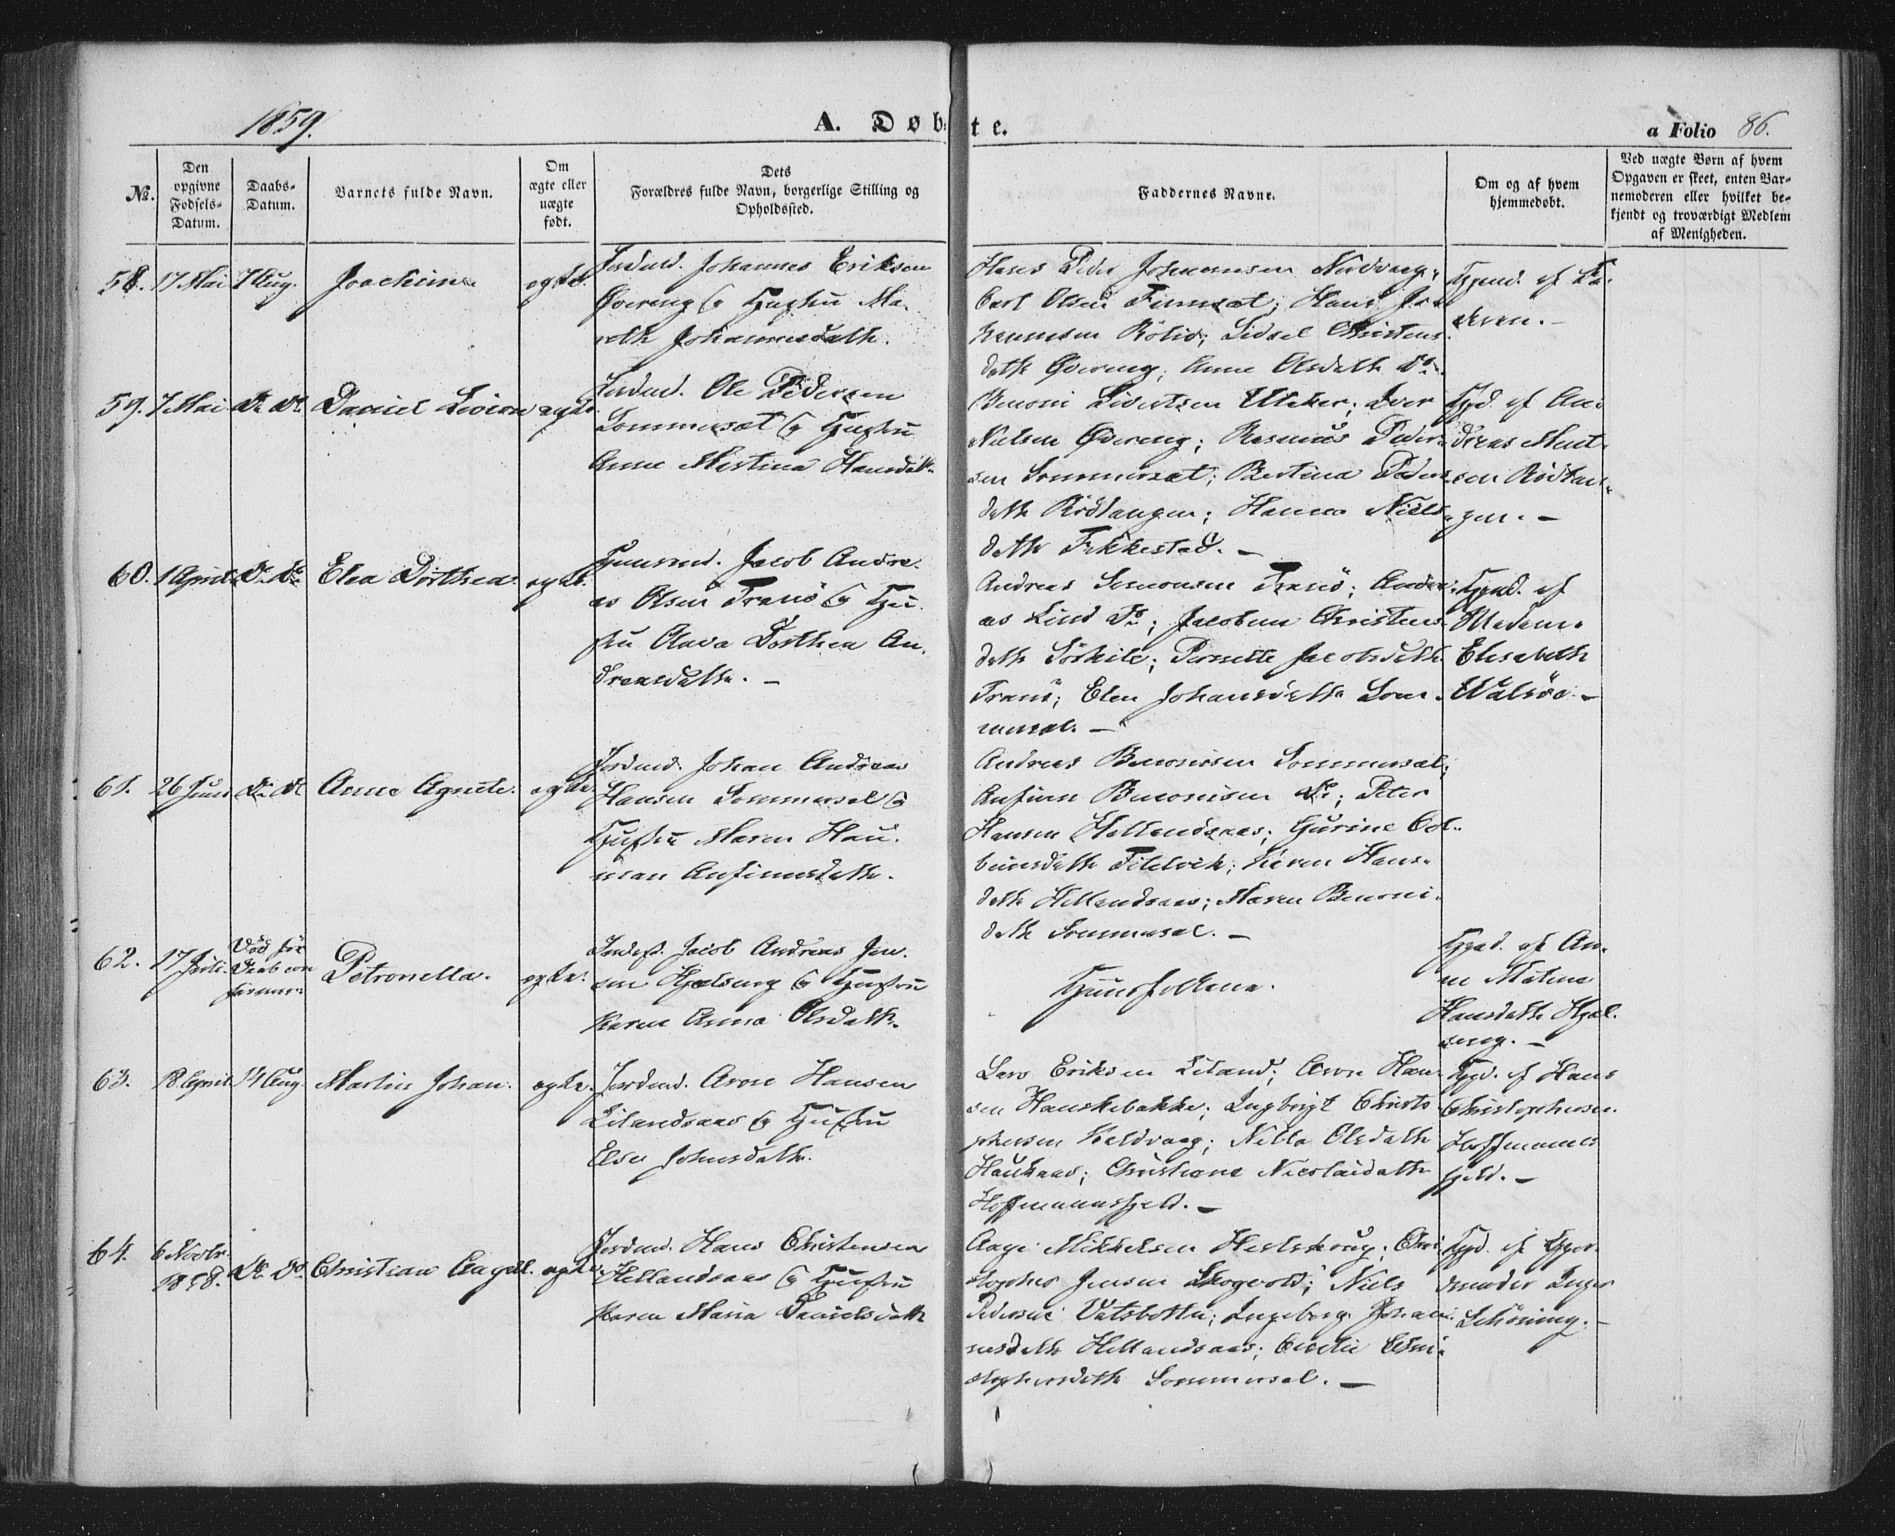 1859.
A. Døbte.
a Folio 86.
No.
Den opgivne Fødsels-Datum.
Daabs-Datum.
Barnets fulde Navn.
Om ægte eller uægte født.
Dets Forældres fulde Navn, borgerlige Stilling og Opholdssted.
Faddernes Navne.
Om og af hvem hjemmedøbt.
Ved uægte Børn af hvem Opgaven er skeet, enten Barnemoderen eller hvilket bekjendt og troværdigt Medlem af Menigheden.
58. 17 Mai 7 Aug. Joachime ægte.
Johannes Eriksen
Øvereng og Hustru Ma-
reth Johannesdatter.
Hans Peder Johannesen Nordvaag;
Carl Olsen Finnset; Hans Jo-
hannesen; Sidsel Christens-
datt Øvereng; Anne Olsdatt Do.
Hjmd. af Fa-
deren.
59. 7 Mai Do Do Daniel ægte
Ole Pedersen
Sommerset og Hustru
Anne Martina Hansdatt.
Benoni Sivertsen; Iver
Nielsen Øvereng; Rasmus Peder-
sen Sommerset; Peders-
datt Rödtangen; Hanna Niels-
datt Fikkestad.
Hjd. af An-
dreas
sen Rödtan-
gen.
60. 1 April Do Do Elea Dorthea ægte.
Huusmd. Jacob Andre-
as Olsen Tranö og Hu-
stru Dorthea An-
dreasdatter.
Andreas Simonsen Tranö; Andre-
as Lind Do; Jacobine Christens-
datt; Pernille Jacobsdatt
Tranö; Elen Johansdatt Som-
merset.
Hjmd. af
Madam
Elisabeth
Walsöe.
61. 26 Juni Do Do Anne Agnete. ægte.
Johan Andreas
Hansen Sommersel og
Hustru Maren Han-
Anfinnsdatt.
Andreas Benonisen Sommersel;
Anfinn Benonisen Do; Peter
Hansen Hellandsaas; Gurine
datt; Karen Hans-
datt Hellandsaas; Maren Benoni-
datt Sommersel.
62. 17 Juli Död før
Daab con-
firmer. Petronella. ægte.
Jacob Andreas Jen-
sen Hjelseng og Hustru
Karen Anna Olsdatt.
Huusfolkene.
Hjmd. af An-
ne
Hansdatt Hjel-
seng.
63. 18 April 14 Aug. Martin Johan. ægte.
Arne Hansen
Lilandsaas og Hustru
Else Johnsdatt.
Lars Eriksen Liland; Arne Han-
sen Hanskebakke; Ingbrigt Christo-
phersen Kaldvaag; Nilla Olsdatt
Haukaas; Christiane Nicolaidatt
Hoffmannsfjeld.
Hjd. af Hans
Christophersen
Hoffmanns-
fjeld.
64. 6 Novbr.
1858. Do Do Christian ægte.
Hans Christensen
Hellandsaas og Hustru
Karen Maria Danielsdatt
Aage Mikkelsen; Chri-
stopher Jensen Skogvold; Niels
Pedersen Vatsbotn; Ingeborg Johan-
nesdatt Hellandsaas; Chri-
stophersdatt Sommersel.
Hjd. af Gjor-
demoder Inger
Schöning.